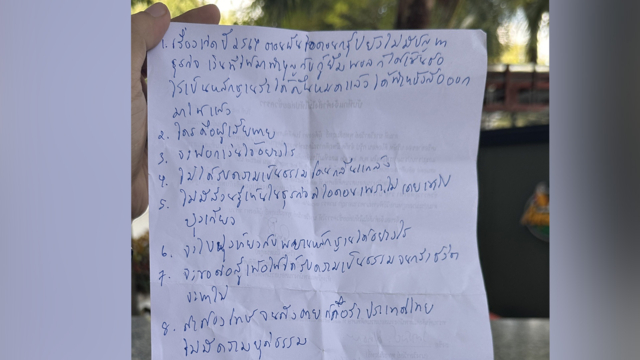 1. เรื่องเกิดปี 2567 ตอนนั้นไอคอนกรุ๊ปยังไม่มีปัญหา
ธุรกิจ เงินที่ให้มาทำบุญกับกู้ยืม พอลก็ได้เขียนข้อ
ไว้เป็นหลักฐานว่าได้คืนหมดแล้ว ได้ทำหนังสือออก
มาให้แล้ว
2. ใครคือผู้เสียหาย
3. จะฟอกเงินได้อย่างไร
4. ไม่ได้รับความเป็นธรรม โดนกลั่นแกล้ง
5. ไม่มีส่วนรู้เห็นในธุรกิจดิไอคอนเพราะไม่เคยเข้าไป
ยุ่งเกี่ยว
6. จะไปยุ่งเหยิงกับพยานหลักฐานได้อย่างไร
7. จะขอต่อสู้เพื่อให้ได้รับความเป็นธรรม จนกว่าชีวิต
จะหาไม่
8. ถ้าต้องโทษจนถึงตายก็ถือว่าประเทศไทย
ไม่มีความยุติธรรม